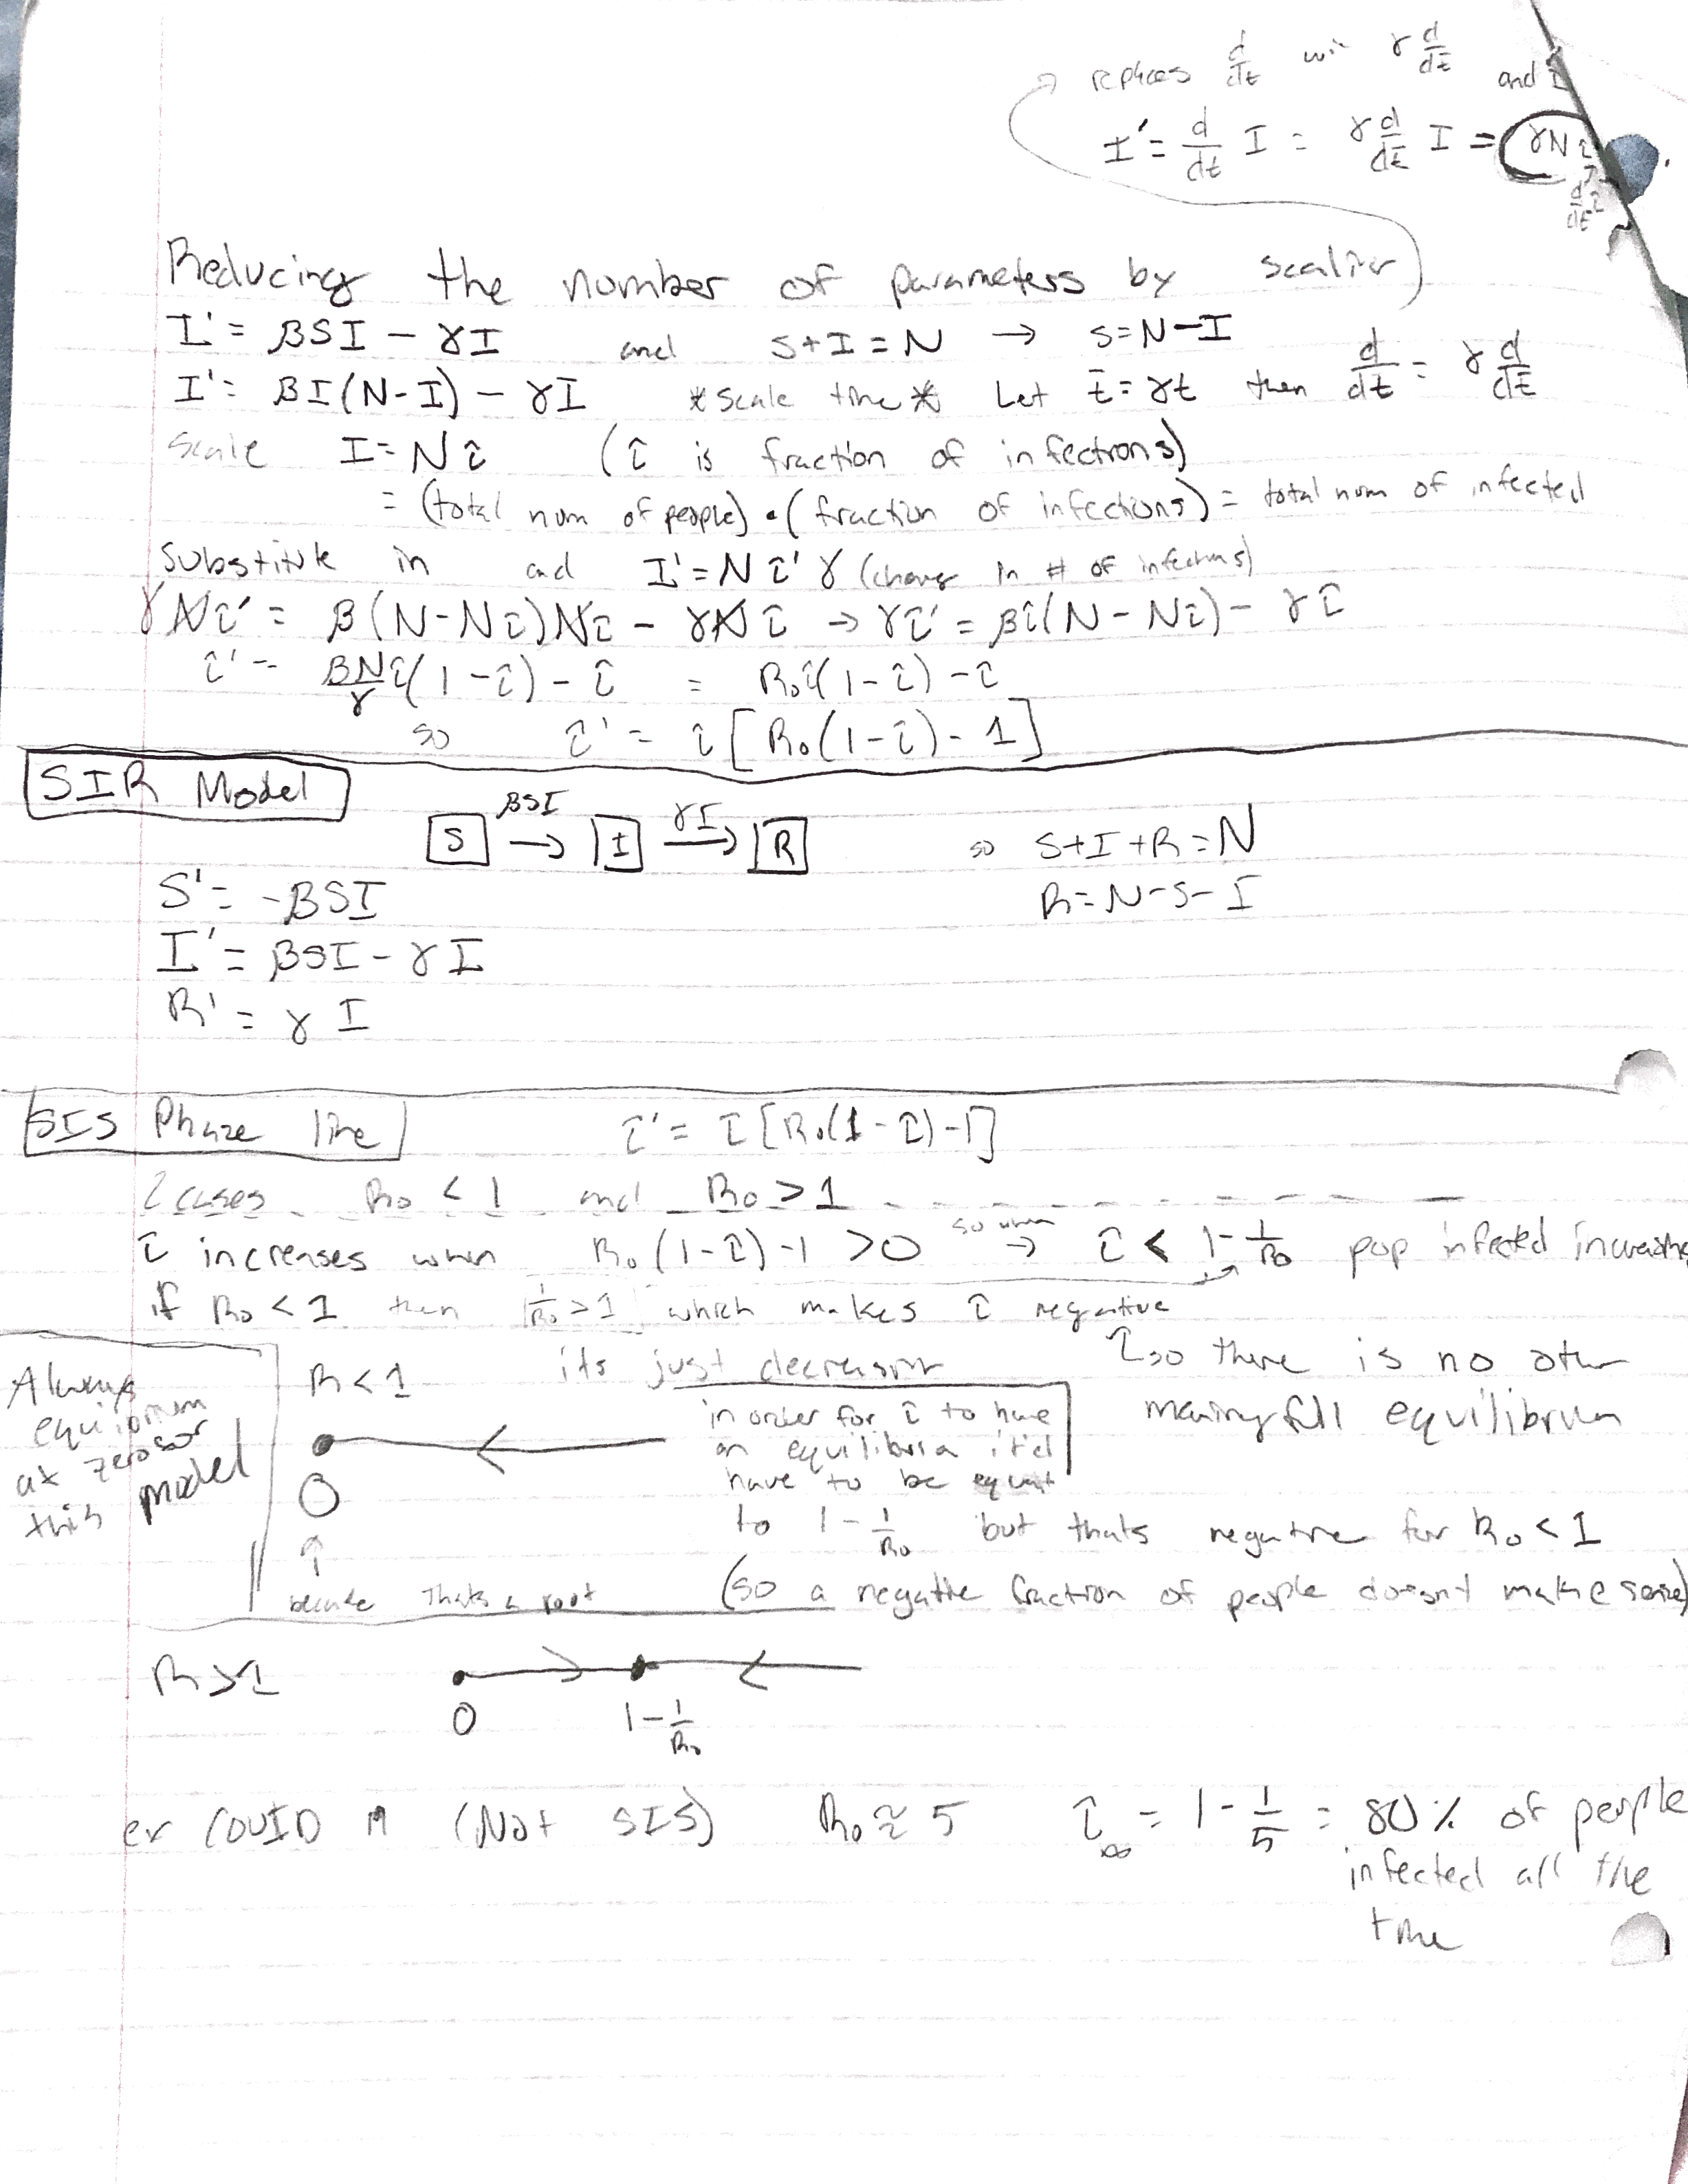 replaces d/dt with γ d/dt̄ and I
I' = d/dt I = γ d/dt̄ I = γN î
d/dt̄ î
Reducing the number of parameters by scaling
I' = βSI - γI and S+I=N → S=N-I
I' = βI(N-I) - γI *scale time* Let t̄=γt then d/dt = γ d/dt̄
Scale I = Nî (î is fraction of infections)
= (total num of people)•(fraction of infections) = total num of infected
Substitute in and I'=Nî'γ (change in # of infections)
γNî' = β(N-Nî)Nî - γNî → γî' = βî(N-Nî) - γî
î' = βN/γ î(1-î) - î = R₀î(1-î) - î
so î' = î[R₀(1-î) - 1]
SIR Model
βSI γI
S → I → R so S+I+R=N
S' = -βSI R=N-S-I
I' = βSI - γI
R' = γI
SIS Phaze line î' = î[R₀(1-î)-1]
2 cases R₀<1 and R₀>1
î increases when R₀(1-î)-1 >0 so when → î < 1-1/R₀ pop infected increasing
if R₀<1 then 1/R₀>1 which makes î negative
so there is no other
meaningfull equilibrium
Always
equilibrium
at zero for
this model
R<1 its just decreasing
in order for î to have
an equilibria it'd
have to be equal
to 1-1/R₀ but thats negative for R₀<1
0
↑
because thats a root (so a negative fraction of people doesn't make sense)
R>1
0 1-1/R₀
ex COVID (Not SIS) R₀≈5 î∞ = 1-1/5 = 80% of people
infected all the
time